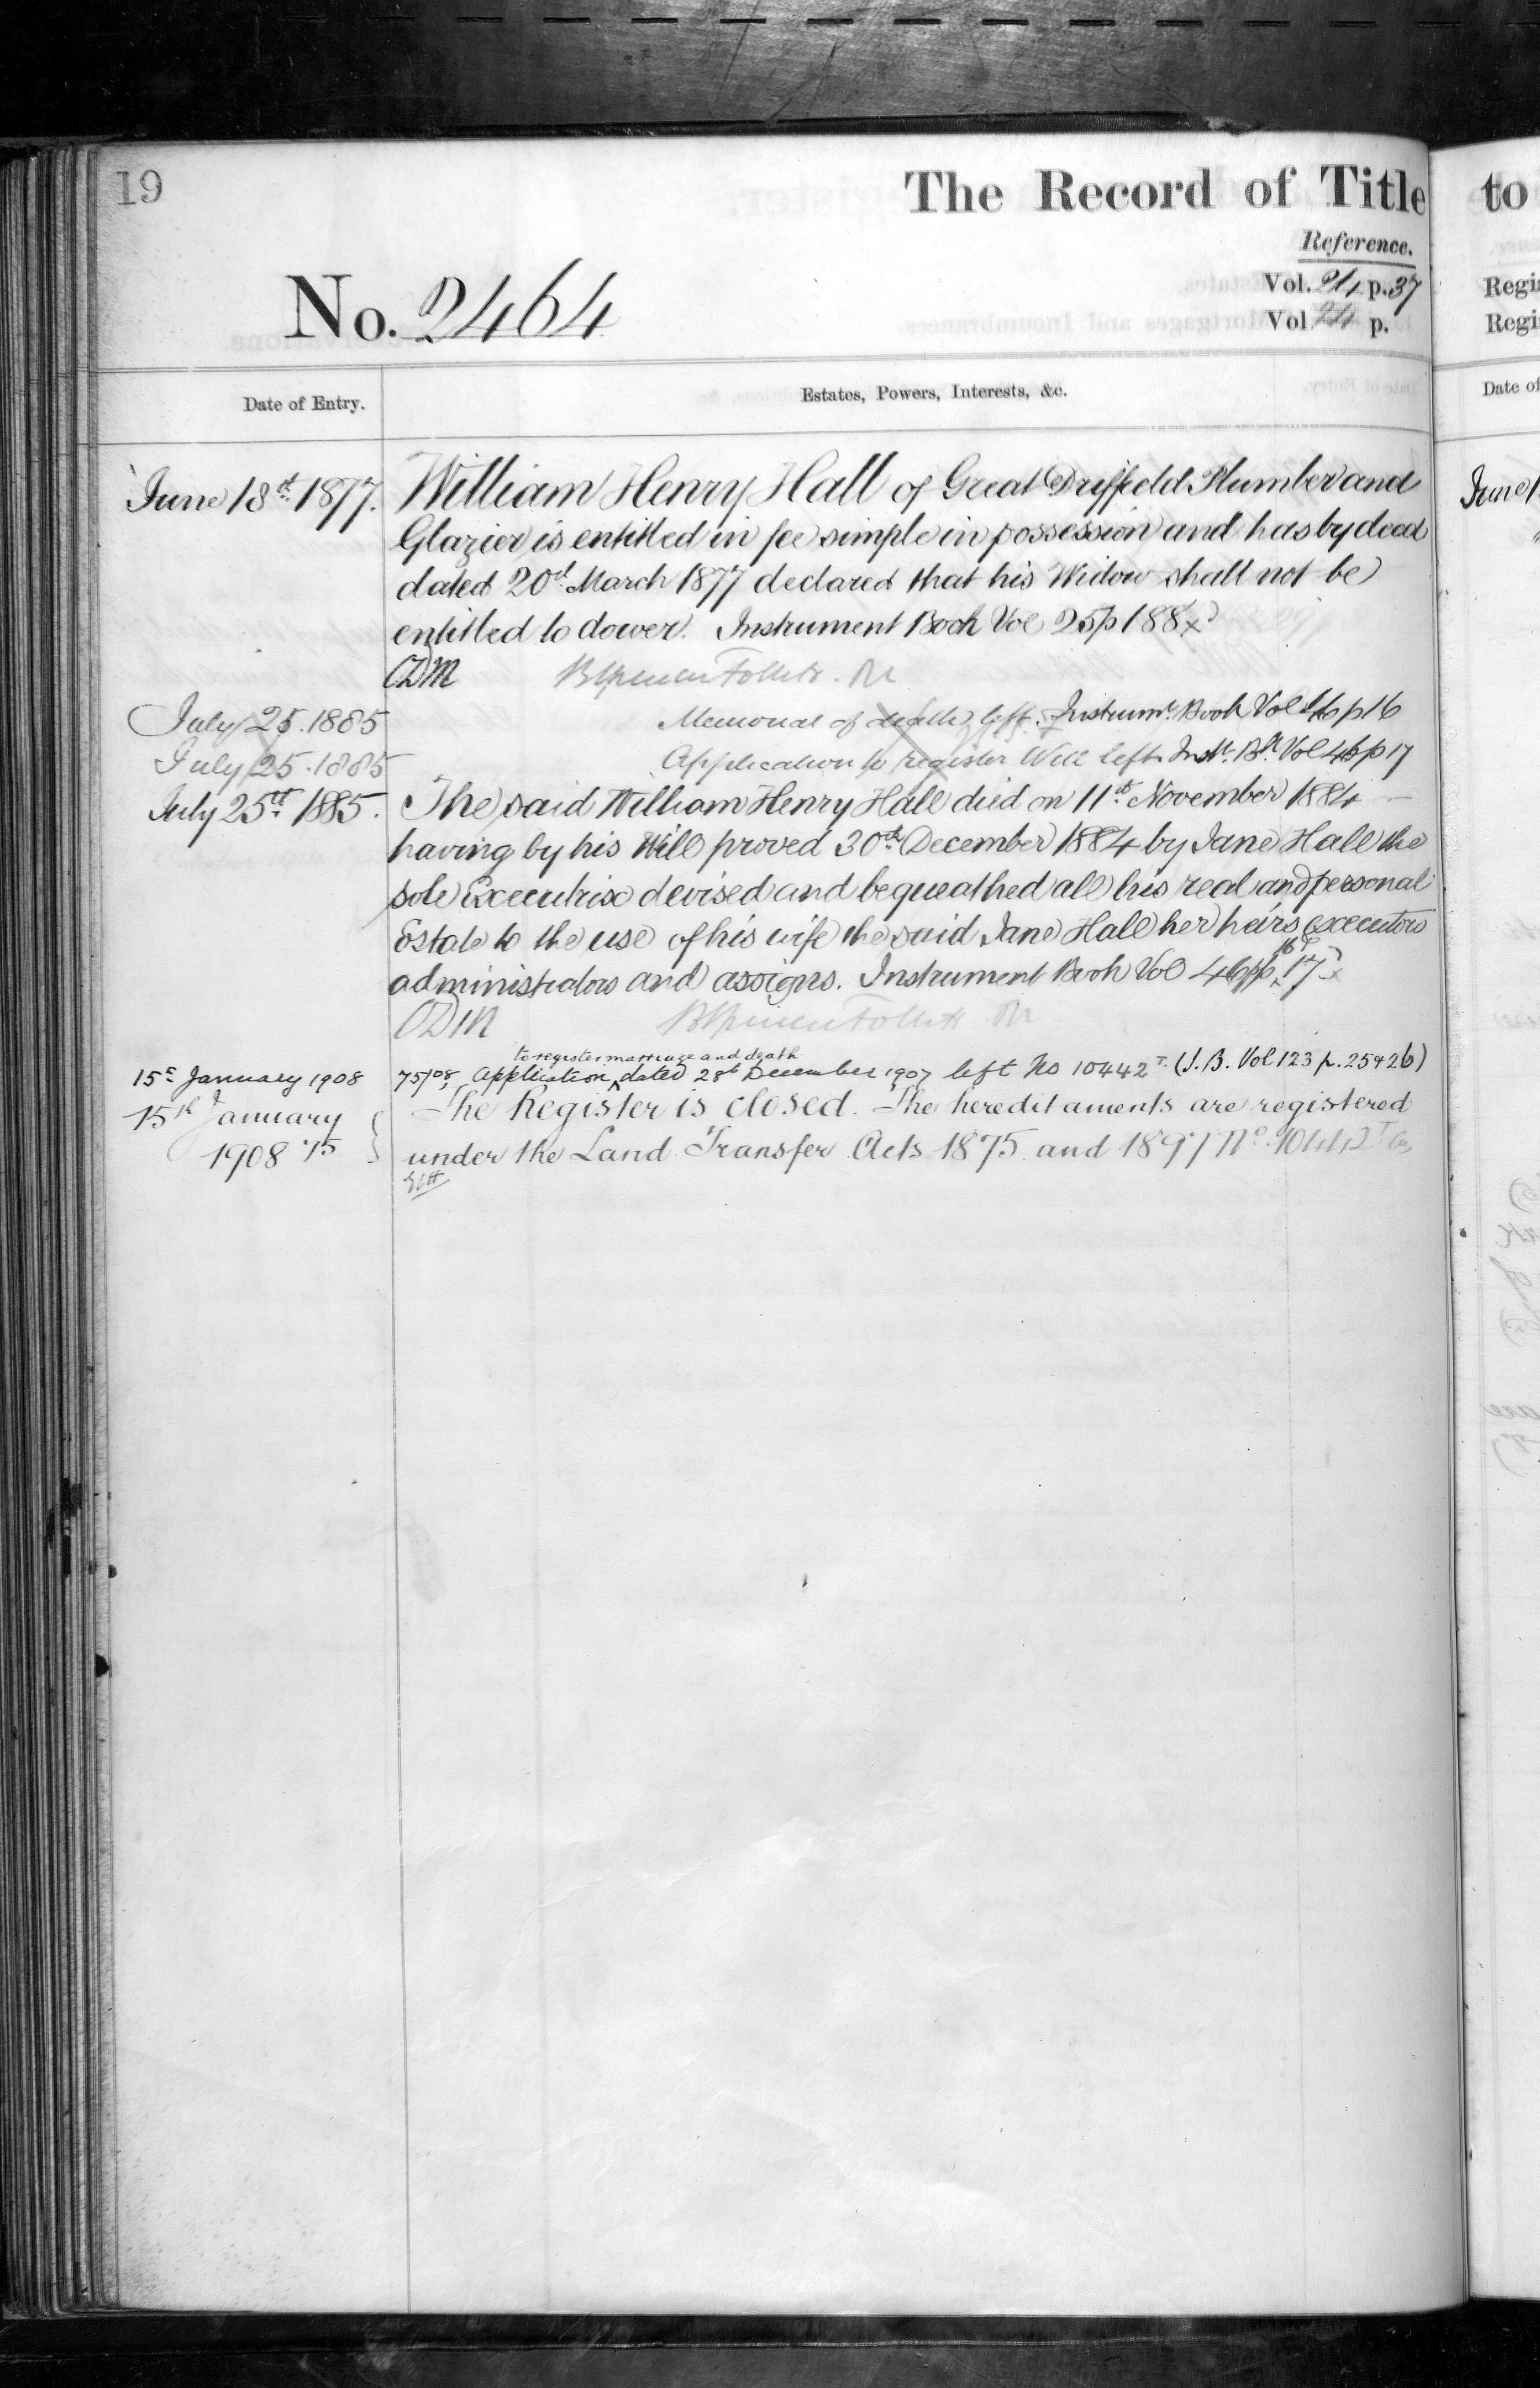 19
The Record of Title
Reference.
No. 2464
Vol. 24 p. 37
Vol 24 p.
Date of Entry.
Estates, Powers, Interests, &c.
June 18th 1877.
William Henry Hall of Great Driffield Plumber and
Glazier is entitled in fee simple in possession and has by deed
dated 20th March 1877 declared that his Widow shall not be
entitled to dower. Instrument Book Vol 25 p 188 x
CDM
July 25. 1885
Memorial of death left. Instrumt. Book Vol 46 p 16
July 25. 1885
Application to register Will left Instt. Bk. Vol 46 p 17
July 25th 1885.
The said William Henry Hall died on 11th November 1884
having by his Will proved 30th December 1884 by Jane Hall the
sole Executrix devised and bequeathed all his real and personal
Estate to the use of his wife the said Jane Hall her heirs executors
administrators and assigns. Instrument Book Vol 46 pp 16 & 17 x
CDM
to register marriage and death
15th January 1908
75/08, Application dated 28th December 1907 left No 10442 T. (I.B. Vol 123 p. 25 & 26)
15th January
The Register is closed. The hereditaments are registered
1908
under the Land Transfer Acts 1875 and 1897 No. 10442 T
to
Regis
Regi
Date of
June 1